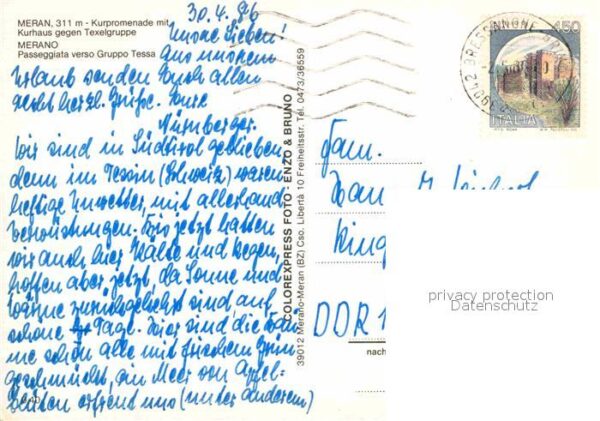 MERAN, 311 m - Kurpromenade mit
Kurhaus gegen Texelgruppe
MERANO
Passeggiata verso Gruppo Tessa
30.4.86
Unsre Lieben!
Aus unserem
Urlaub senden Euch allen
recht herzl. Grüße. Eure
Nürnberger.
Wir sind in Südtirol geblieben,
denn im Tessin (Schweiz) waren
heftige Unwetter, mit allerhand
Verwüstungen. Bis jetzt hatten
wir auch hier Kälte und Regen,
hoffen aber jetzt, da Sonne und
Wärme zurückgekehrt sind, auf
schöne Tage. Hier sind die Bäu-
me schon alle mit frischem Grün
geschmückt, ein Meer von Apfel-
blüten erfreut uns (unter anderem)
COLOREXPRESS FOTO - ENZO & BRUNO
39012 Merano-Meran (BZ) Cso. Libertà 10 Freiheitsstr. Tel. 0473/36559
Fam.
DDR 1
nach
450
ITALIA
BRESSANONE
privacy protection
Datenschutz